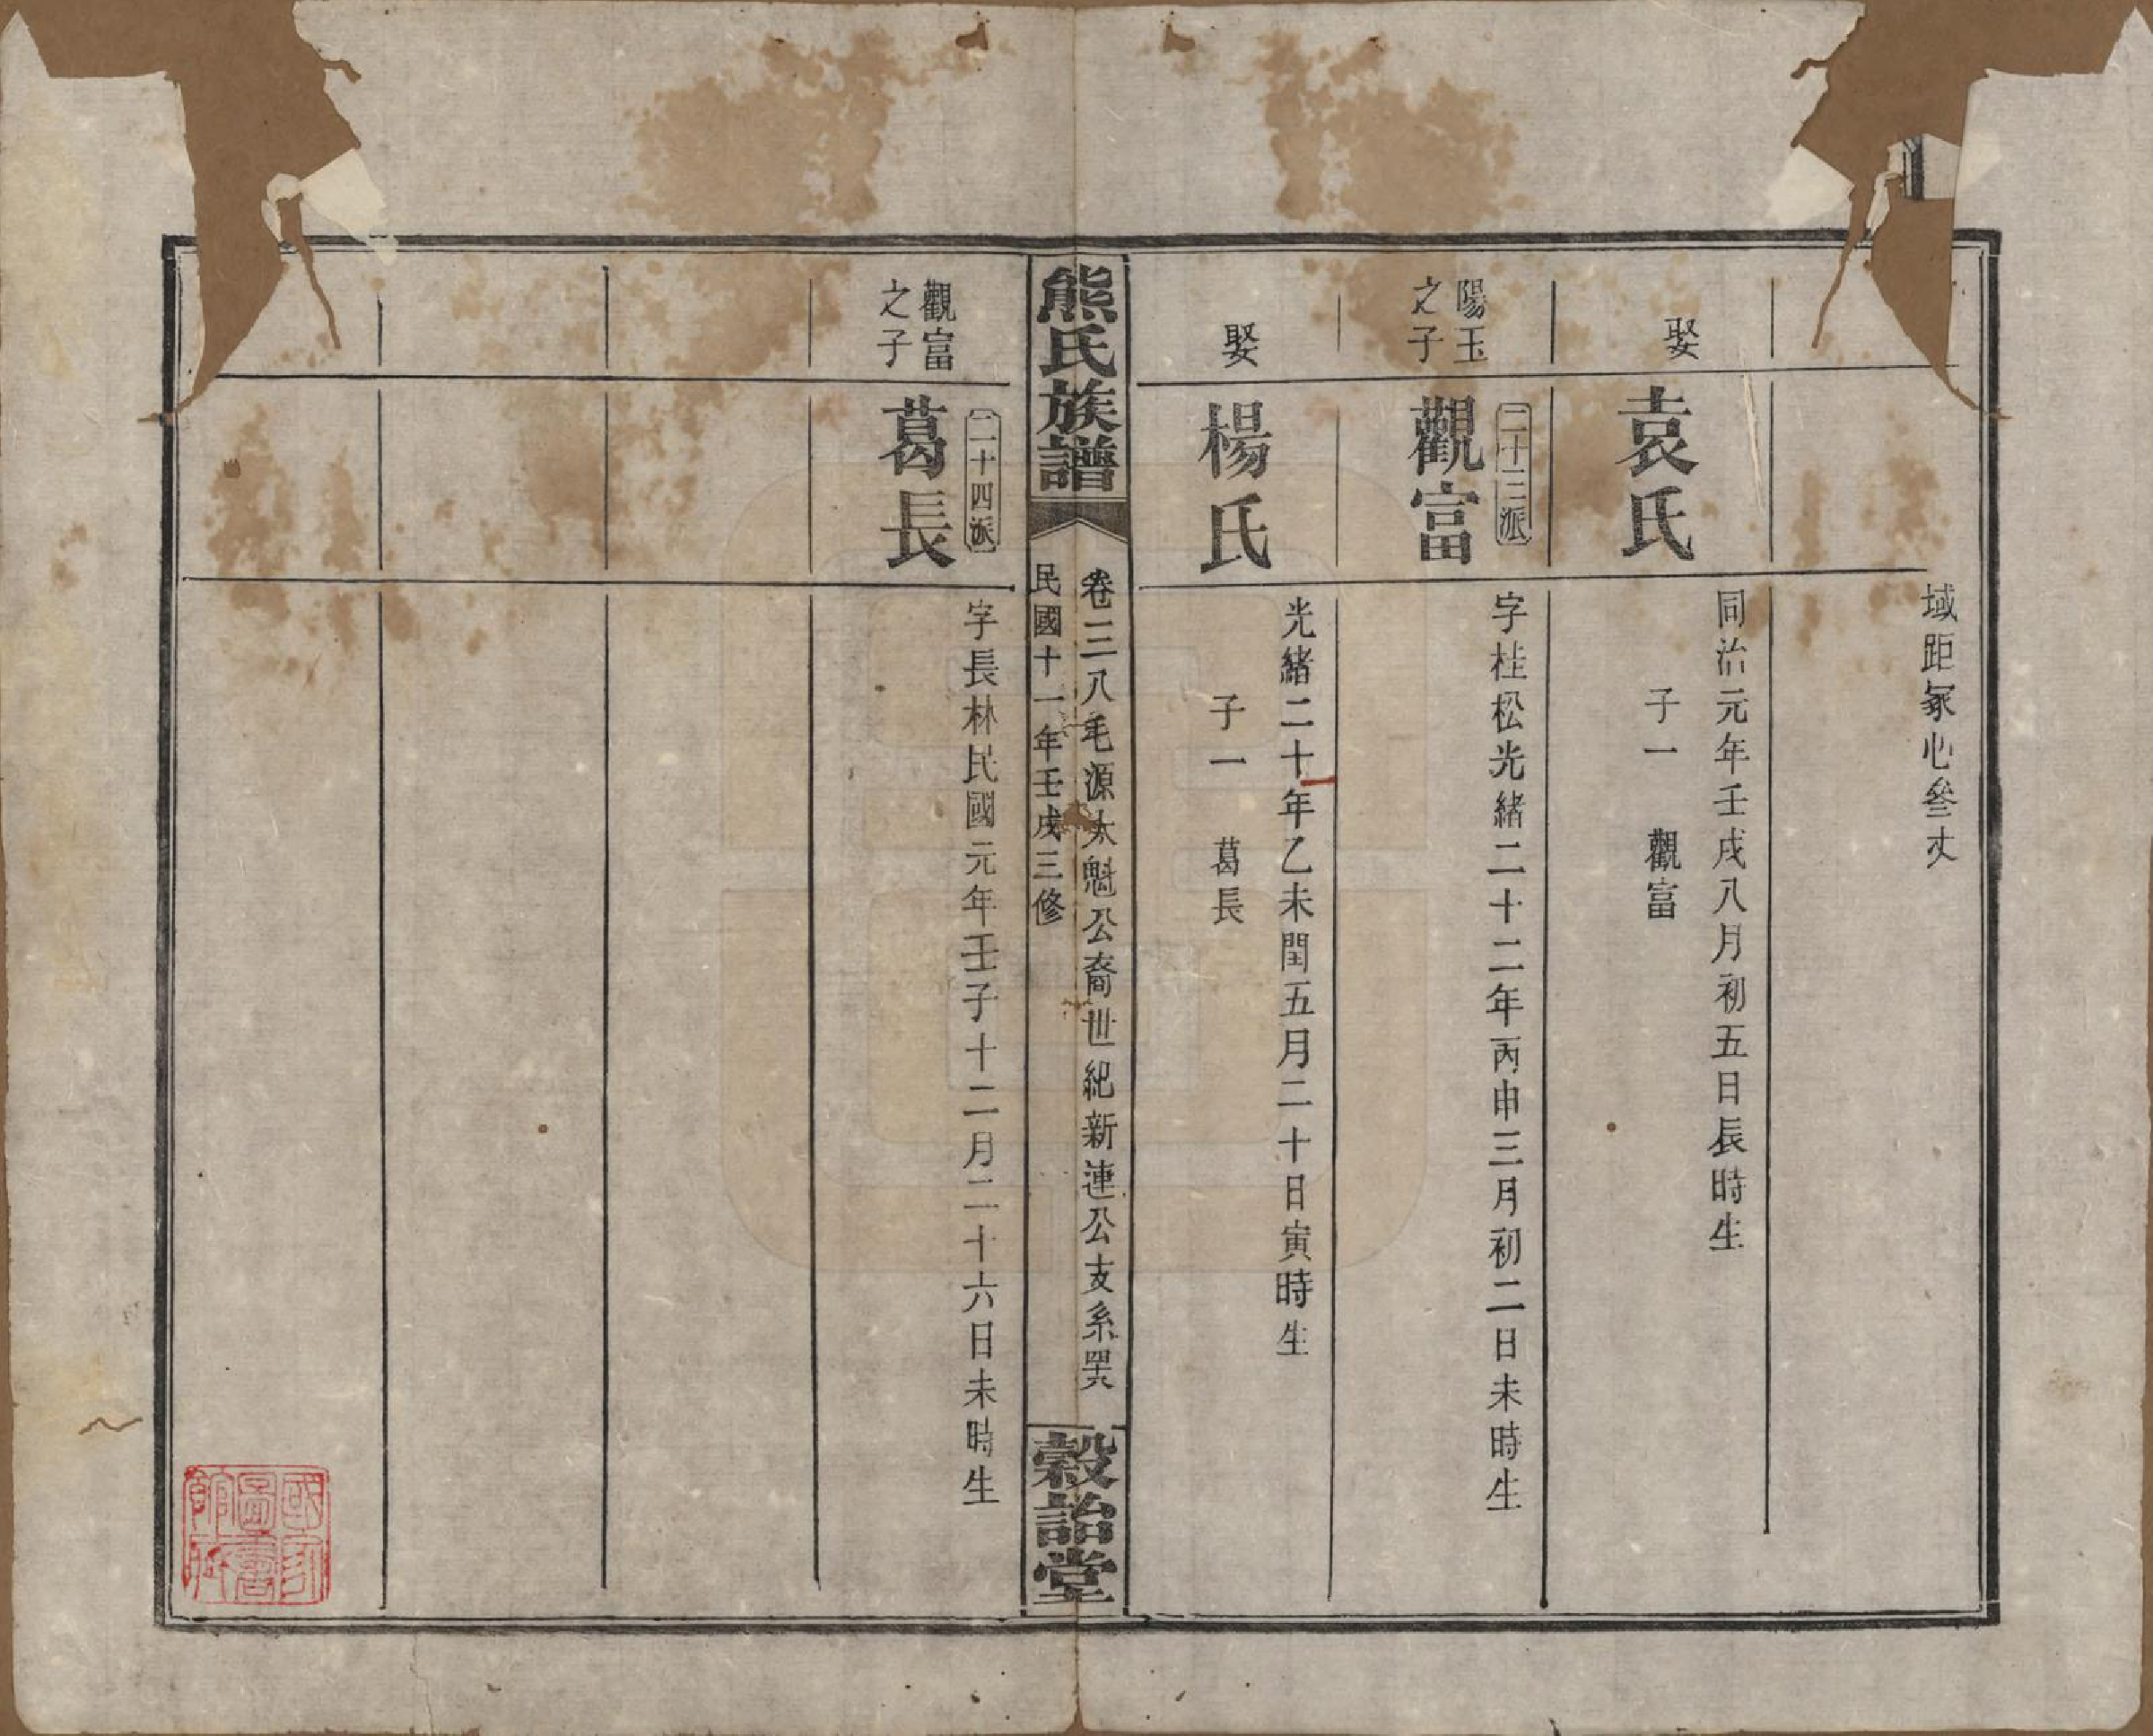 域距冢心叁丈
娶
袁氏
同治元年壬戌八月初五日長時生
子一　觀富
陽玉
之子
二十三派
觀富
字桂松光緒二十二年丙申三月初二日未時生
娶
楊氏
光緒二十一年乙未閏五月二十日寅時生
子一　葛長
熊氏族譜
卷三八毛源太魁公裔世紀新連公支系罒六
民國十一年壬戌三修
穀詒堂
觀富
之子
二十四派
葛長
字長林民國元年壬子十二月二十六日未時生